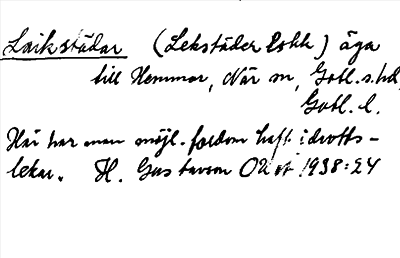 Laikstädar (Lekstäder Eskh) äga
till Hemmor, När sn, Gotl. s. hd,
Gotl. l.
Här har man möjl. fordom haft idrotts-
lekar. H. Gustavson 1938:24